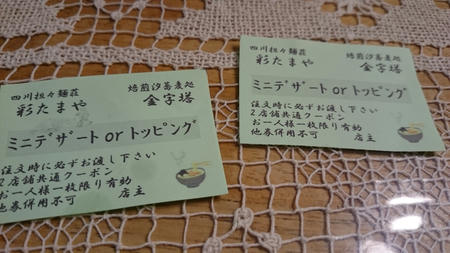 四川担々麺荘 焙煎汐蕎麦処
彩たまや 金字塔
ミニデザート or トッピング
注文時に必ずお渡し下さい
2店舗共通クーポン
お一人様一枚限り有効
他券併用不可 店主
四川担々麺荘 焙煎汐蕎麦処
彩たまや 金字塔
ミニデザート or トッピング
注文時に必ずお渡し下さい
2店舗共通クーポン
お一人様一枚限り有効
他券併用不可 店主